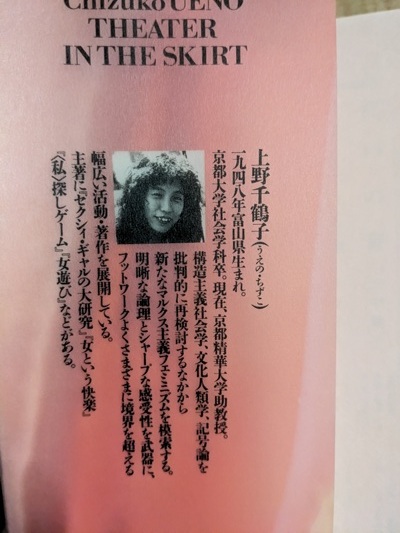 Chizuko UENO
THEATER
IN THE SKIRT
上野千鶴子(うえの・ちずこ)
一九四八年富山県生まれ。
京都大学社会学科卒。現在、京都精華大学助教授。
構造主義社会学、文化人類学、記号論を
批判的に再検討するなかから
新たなマルクス主義フェミニズムを模索する。
明晰な論理とシャープな感受性を武器に、
フットワークよくさまざまに境界を超える
幅広い活動・著作を展開している。
主著に『セクシィ・ギャルの大研究』『女という快楽』
『〈私〉探しゲーム』『女遊び』などがある。